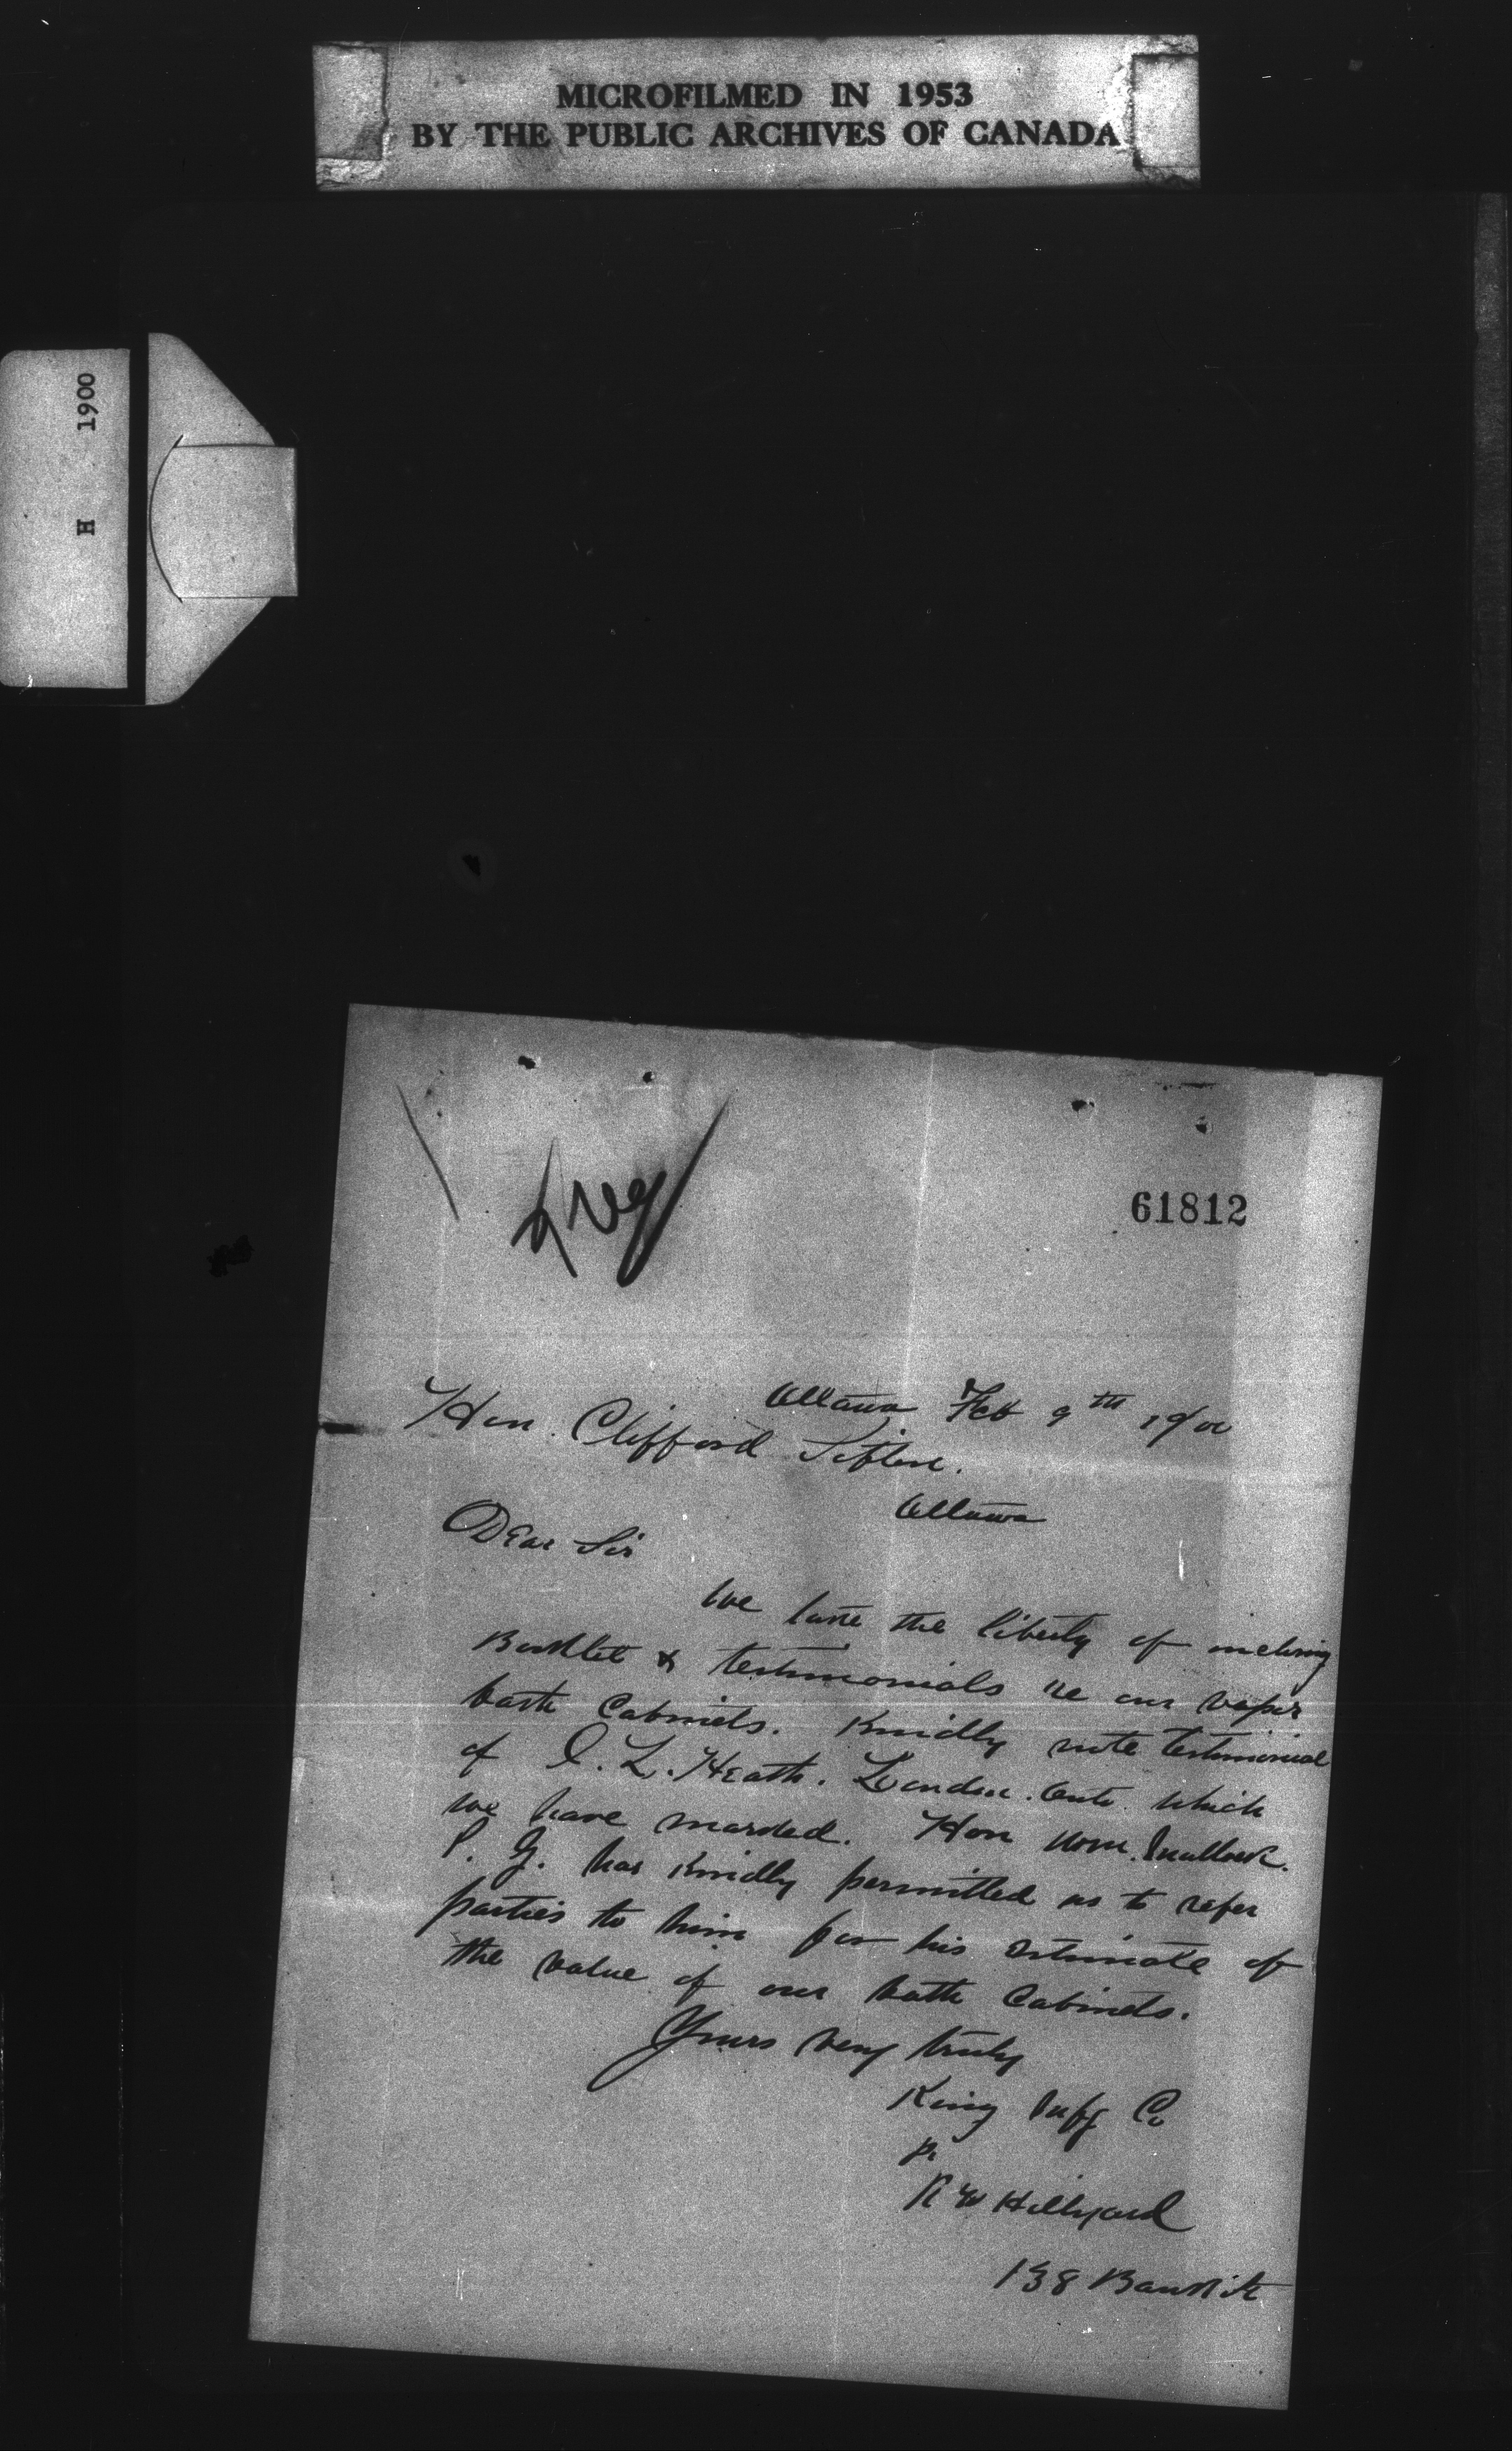 MICROFILMED IN 1953
BY THE PUBLIC ARCHIVES OF CANADA
H 1900
61812
Ottawa Feb 9th 1900
Hon. Clifford Sifton.
Ottawa
Dear Sir
We take the liberty of inclosing
Booklet & testimonials re our vapor
bath Cabinets. Kindly note testimonial
of L. Heath. London. Onto. which
we have marked. Hon Wm. Mullock.
P. G. has Kindly permitted us to refer
parties to him for his estimate of
the value of our bath Cabinets.
Yours very truly
King Mfg Co
Pr
R W Hillyard
138 Bank St